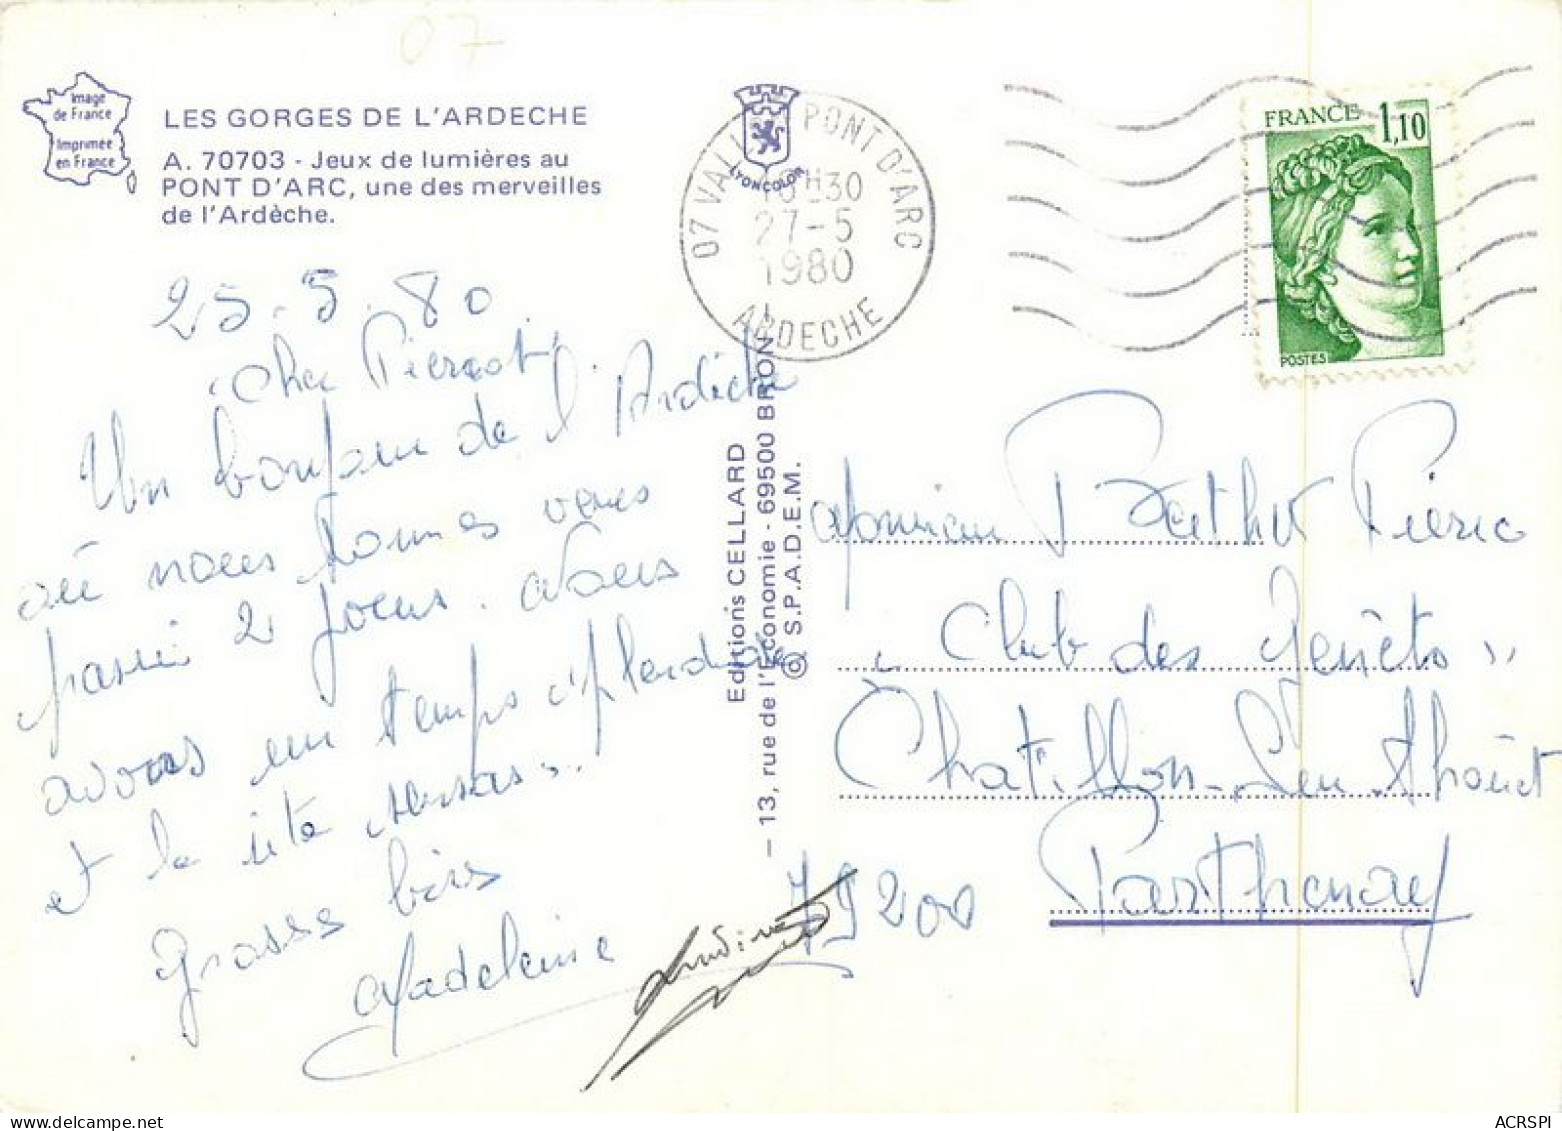 07
Image
de France
Imprimée
en France
LES GORGES DE L'ARDECHE
A. 70703 - Jeux de lumières au
PONT D'ARC, une des merveilles
de l'Ardèche.
LYONCOLOR
07 VALL PONT D'ARC
18H30
27-5
1980
ARDECHE
FRANCE 1,10
POSTES
25.5.80
Cher Pierrot
Un bonjour de l'Ardèche
où nous sommes venus
passer 2 jours. Nous
avons un temps splendide
et le site
Grosses bises
Madeleine
Editions CELLARD
— 13, rue de l'Economie - 69500 BRON —
© S.P.A.D.E.M.
Monsieur Berthot Pierre
"Club des Genêts"
Chatillon-Sur Thouet
79200 Parthenay
www.delcampe.net
ACRSPI